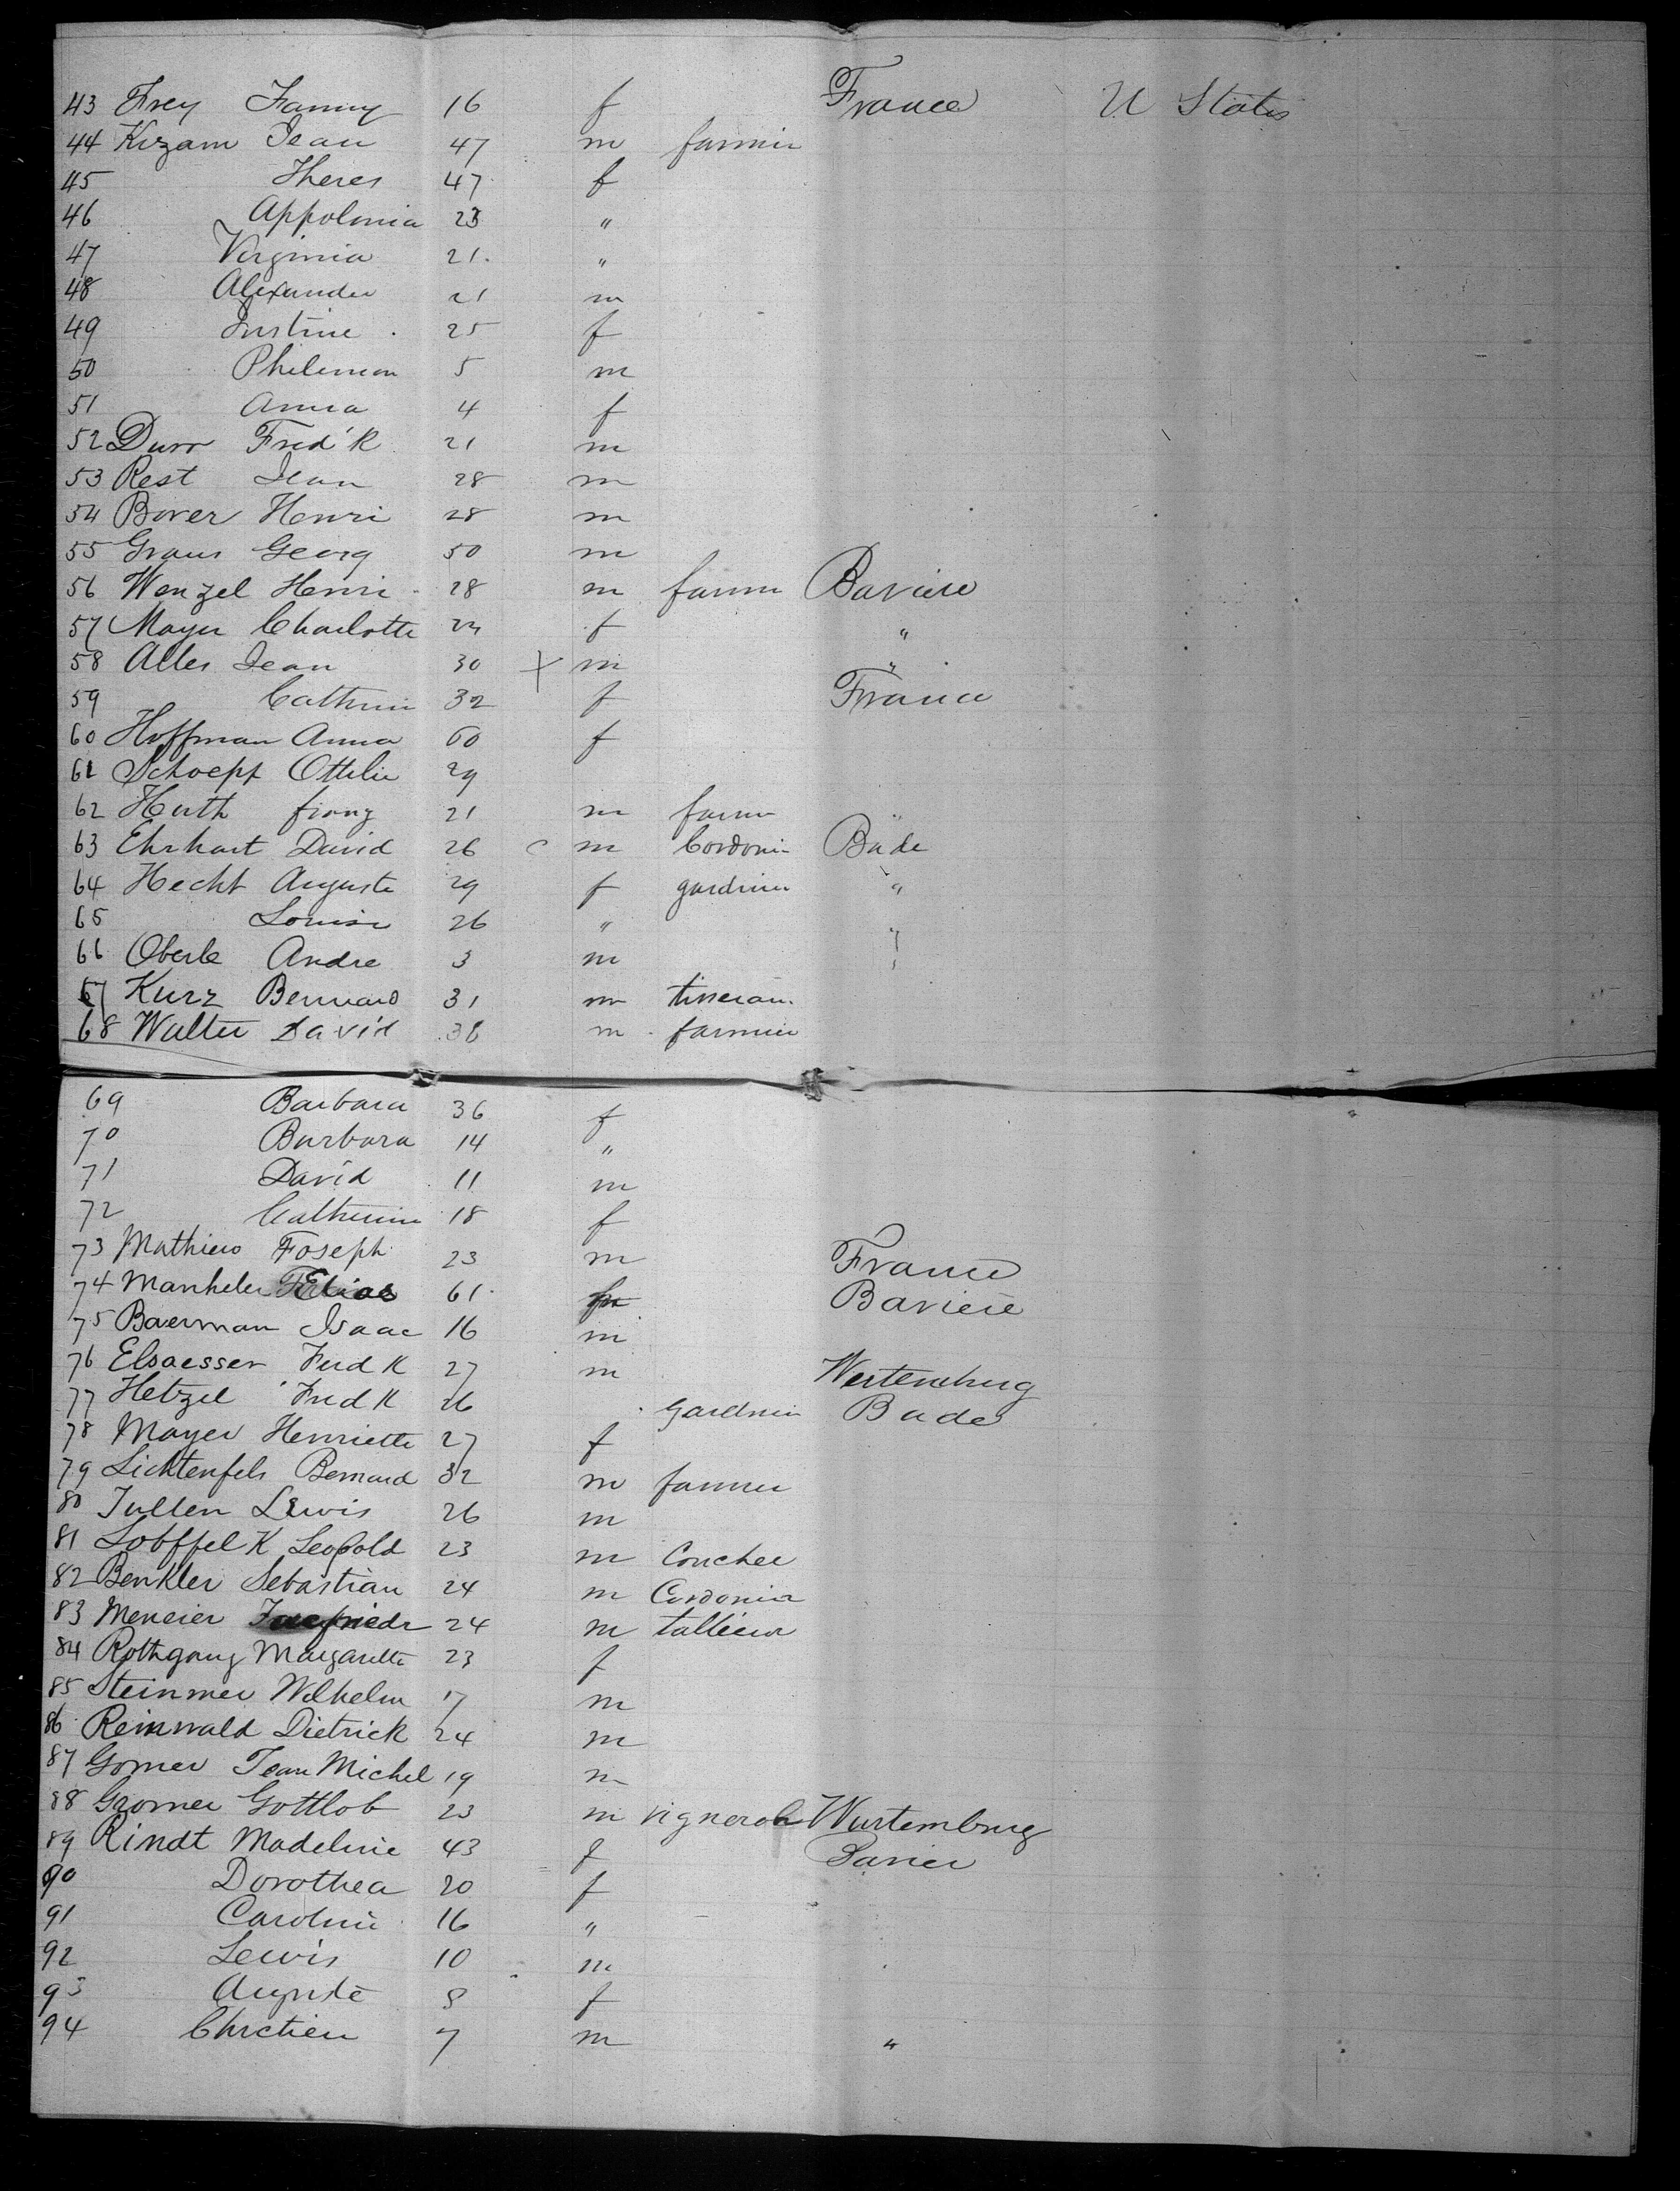 43 Frey Fanny 16 f France U States
44 Kizam Jean 47 m farmer
45 Theres 47 f
46 Appolonia 23 "
47 Virginia 21 "
48 Alexander 21 m
49 Justine 25 f
50 Philemon 5 m
51 Anna 4 f
52 Durr Fred'k 21 m
53 Rest Jean 28 m
54 Bover Henri 28 m
55 Graus Georg 50 m
56 Wenzel Henri 28 m farmer Baviere
57 Mayer Charlotte f "
58 Alles Jean 30 X m "
59 Cathrin 32 f France
60 Hoffman Anna 60 f
61 Schoepf Ottilie 29
62 Huth 21 m farm "
63 Ehrhart David 26 m Cordonier Bade
64 Hecht Auguste 29 f gardiner "
65 Louise 26 "
66 Oberle Andre 3 m
67 Kurz Bernard 31 m tisseran
68 Walter David 38 m farmer
69 Barbara 36 f
70 Barbara 14 "
71 David 11 m
72 Catherine 18 f
73 Mathieu Joseph 23 m France
74 Manheler Elias 61 Baviere
75 Baerman Isaac 16 m
76 Elsaesser Fred K 27 m Wertemburg
77 Hetzel Fred K 26 gardner Bade
78 Mayer Henriette 27 f
79 Lichtenfels Bernard 32 m farmer
80 Jullen Lewis 26 m
81 Lobffel K Leopold 23 m Couchee
82 Benkler Sebastian 24 m Cordonier
83 Meneier 24 m tallieur
84 Rothgang Margarette 23 f
85 Steinmer Wilhelm 17 m
86 Reinwald Dietrick 24 m
87 Gomer Jean Michel 19 m
88 Gromer Gottlob 23 m vigneron Wurtemburg
89 Rindt Madeline 43 f Bavier
90 Dorothea 20 f
91 Caroline 16 "
92 Lewis 10 m
93 Auguste 8 f
94 Chretien 7 m "